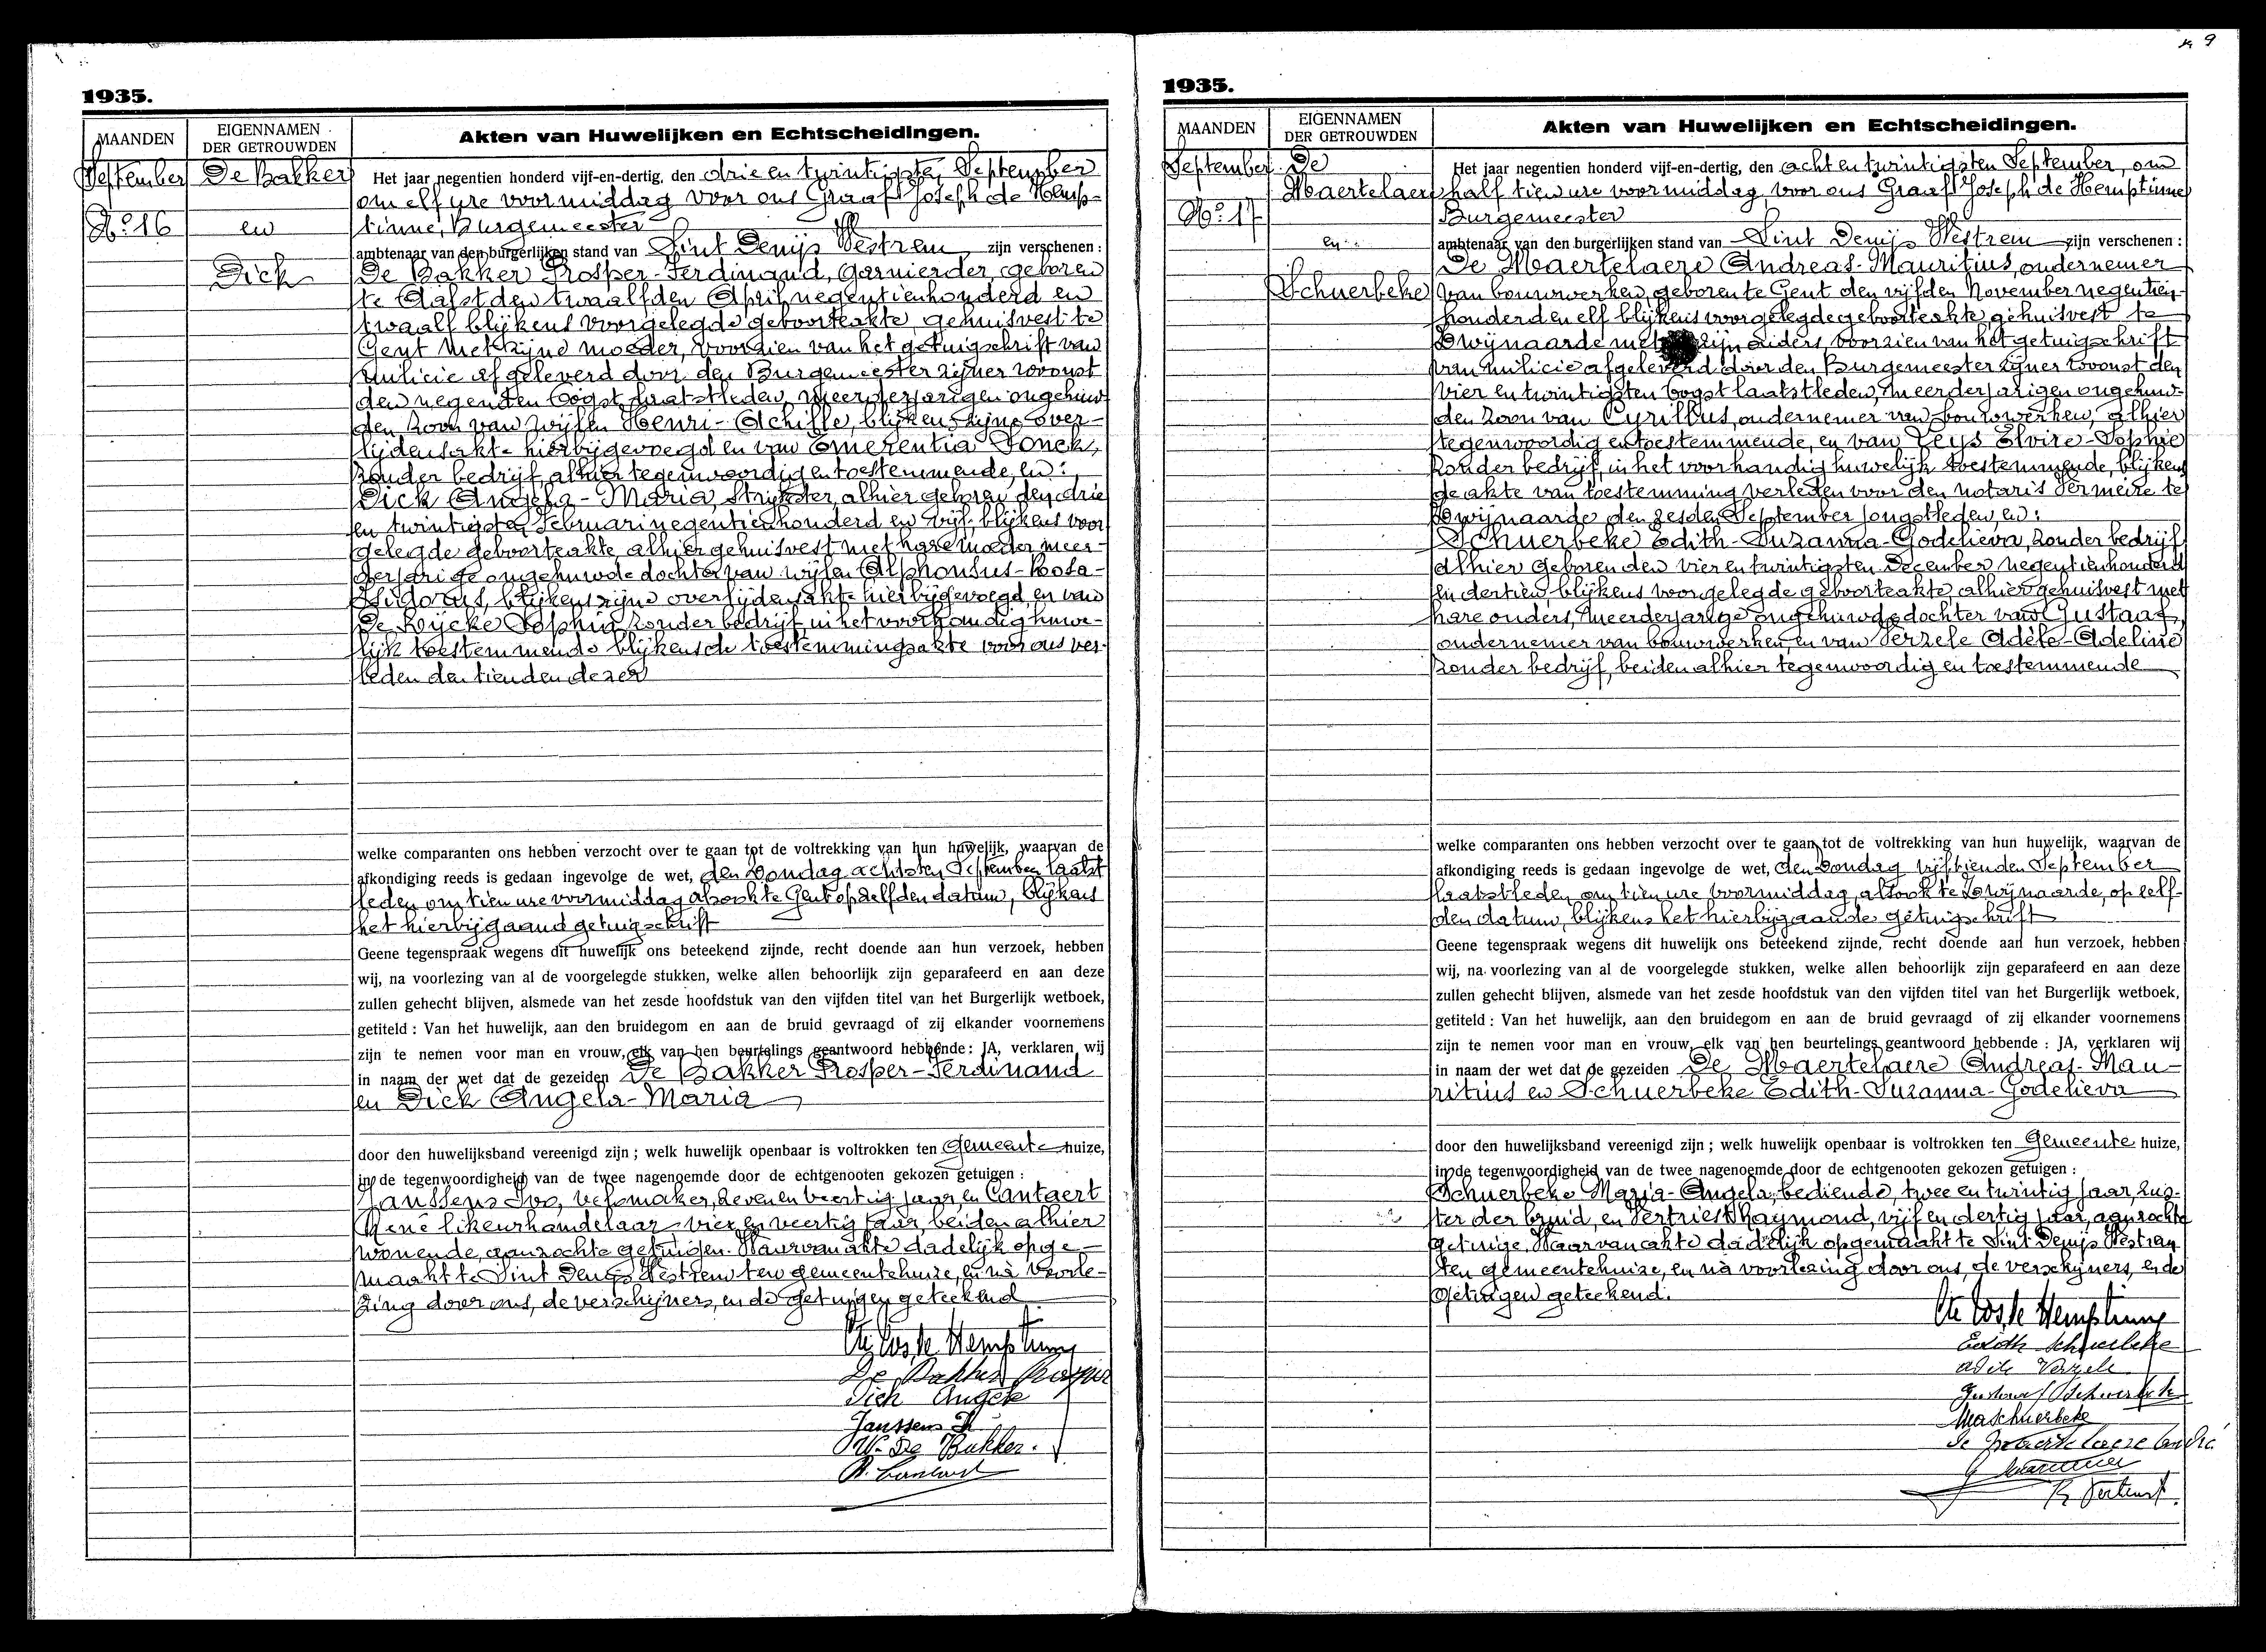 1935.
MAANDEN
EIGENNAMEN
DER GETROUWDEN
Akten van Huwelijken en Echtscheidingen.
September
No 16
De Bakker
en
Dick
Het jaar negentien honderd vijf-en-dertig, den drie en twintigsten September
om elf ure voormiddag voor ons Graaf Joseph de Hemp-
tinne, Burgemeester
ambtenaar van den burgerlijken stand van Sint Denijs Westrem zijn verschenen :
De Bakker Prosper-Ferdinand, garnierder, geboren
te Aalst den twaalfden April negentienhonderd en
twaalf blijkens voorgelegde geboorteakte, gehuisvest te
Gent met zijne moeder, voorzien van het getuigschrift van
milicie afgeleverd door den Burgemeester zijner woonst
den negenden Oogst laatstleden, meerderjarigen ongehuw-
den zoon van wijlen Henri-Achille, blijkens zijne over-
lijdensakte hierbijgevoegd en van Emerentia Fonck,
zonder bedrijf alhier tegenwoordig en toestemmende, en :
Dick Angela-Maria, strijkster, alhier geboren den drie
en twintigsten Februari negentienhonderd en vijf, blijkens voor
gelegde geboorteakte, alhier gehuisvest met hare moeder meer-
derjarige ongehuwde dochter van wijlen Alphonsus-Rosa-
Isidorus, blijkens zijne overlijdensakte hierbijgevoegd, en van
De Rijcke Sophia zonder bedrijf in het voorhandig huwe-
lijk toestemmende blijkens de toestemmingsakte voor ons ver-
leden den tienden dezer
welke comparanten ons hebben verzocht over te gaan tot de voltrekking van hun huwelijk, waarvan de
afkondiging reeds is gedaan ingevolge de wet, den Zondag achtsten September laatst
leden om tien ure voormiddag alsook te Gent op zelfden datum, blijkens
het hierbijgaand getuigschrift
Geene tegenspraak wegens dit huwelijk ons beteekend zijnde, recht doende aan hun verzoek, hebben
wij, na voorlezing van al de voorgelegde stukken, welke allen behoorlijk zijn geparafeerd en aan deze
zullen gehecht blijven, alsmede van het zesde hoofdstuk van den vijfden titel van het Burgerlijk wetboek,
getiteld : Van het huwelijk, aan den bruidegom en aan de bruid gevraagd of zij elkander voornemens
zijn te nemen voor man en vrouw, elk van hen beurtelings geantwoord hebbende : JA, verklaren wij
in naam der wet dat de gezeiden De Bakker Prosper-Ferdinand
en Dick Angela-Maria
door den huwelijksband vereenigd zijn ; welk huwelijk openbaar is voltrokken ten Gemeente huize,
in de tegenwoordigheid van de twee nagenoemde door de echtgenooten gekozen getuigen :
Janssens Ivo, velomaker, zeven en veertig jaar, en Cantaert
René likeurhandelaar, vier en veertig jaar, beiden alhier
wonende, aanzochte getuigen. Waarvan akte dadelijk opge-
maakt te Sint Denijs Westrem ten gemeentehuize, en na voorle-
zing door ons, de verschijners, en de getuigen geteekend
Cte Jos. de Hemptinne
De Bakker Prosper
Dick Angele
Janssens
W. De Bakker.
R. Cantaert
9
1935.
MAANDEN
EIGENNAMEN
DER GETROUWDEN
Akten van Huwelijken en Echtscheidingen.
September
No 17
De
Maertelaere
en
Schuerbeke
Het jaar negentien honderd vijf-en-dertig, den acht en twintigsten September, om
half tien ure voormiddag, voor ons Graaf Joseph de Hemptinne
Burgemeester
ambtenaar van den burgerlijken stand van Sint Denijs Westrem zijn verschenen :
De Maertelaere Andreas-Mauritius, ondernemer
van bouwwerken, geboren te Gent den vijfden November negentien-
honderd en elf blijkens voorgelegde geboorteakte, gehuisvest te
Zwijnaarde met zijn ouders, voorzien van het getuigschrift
van milicie afgeleverd door den Burgemeester zijner woonst den
vier en twintigsten Oogst laatstleden, meerderjarigen ongehuw-
den zoon van Cyrillus, ondernemer van bouwwerken, alhier
tegenwoordig en toestemmende, en van Leys Elvire-Sophie
zonder bedrijf, in het voorhandig huwelijk toestemmende, blijkens
de akte van toestemming verleden voor den notaris Vermeire te
Zwijnaarde den zesden September jongstleden, en :
Schuerbeke Edith-Suzanna-Godelieva, zonder bedrijf
alhier geboren den vier en twintigsten December negentienhonderd
en dertien blijkens voorgelegde geboorteakte, alhier gehuisvest met
hare ouders, meerderjarige ongehuwde dochter van Gustaaf,
ondernemer van bouwwerken, en van Verzele Adèle-Adeline
zonder bedrijf, beiden alhier tegenwoordig en toestemmende
welke comparanten ons hebben verzocht over te gaan tot de voltrekking van hun huwelijk, waarvan de
afkondiging reeds is gedaan ingevolge de wet, den Zondag vijftienden September
laatstleden om tien ure voormiddag, alsook te Zwijnaarde, op zelf-
den datum, blijkens het hierbijgaande getuigschrift
Geene tegenspraak wegens dit huwelijk ons beteekend zijnde, recht doende aan hun verzoek, hebben
wij, na voorlezing van al de voorgelegde stukken, welke allen behoorlijk zijn geparafeerd en aan deze
zullen gehecht blijven, alsmede van het zesde hoofdstuk van den vijfden titel van het Burgerlijk wetboek,
getiteld : Van het huwelijk, aan den bruidegom en aan de bruid gevraagd of zij elkander voornemens
zijn te nemen voor man en vrouw, elk van hen beurtelings geantwoord hebbende : JA, verklaren wij
in naam der wet dat de gezeiden De Maertelaere Andreas-Mau-
ritius en Schuerbeke Edith-Suzanna-Godelieva
door den huwelijksband vereenigd zijn ; welk huwelijk openbaar is voltrokken ten Gemeente huize,
in de tegenwoordigheid van de twee nagenoemde door de echtgenooten gekozen getuigen :
Schuerbeke Maria-Angela, bediende, twee en twintig jaar, zus-
ter der bruid, en Vertriest Raymond, vijf en dertig jaar, aanzochte
getuige. Waarvan akte dadelijk opgemaakt te Sint Denijs Westrem
ten gemeentehuize, en na voorlezing door ons, de verschijners, en de
getuigen geteekend.
Cte Jos. de Hemptinne
Edith Schuerbeke
Adile Verzele
Gustaaf Schuerbeke
MaSchuerbeke
De Maertelaere André
R Vertriest.